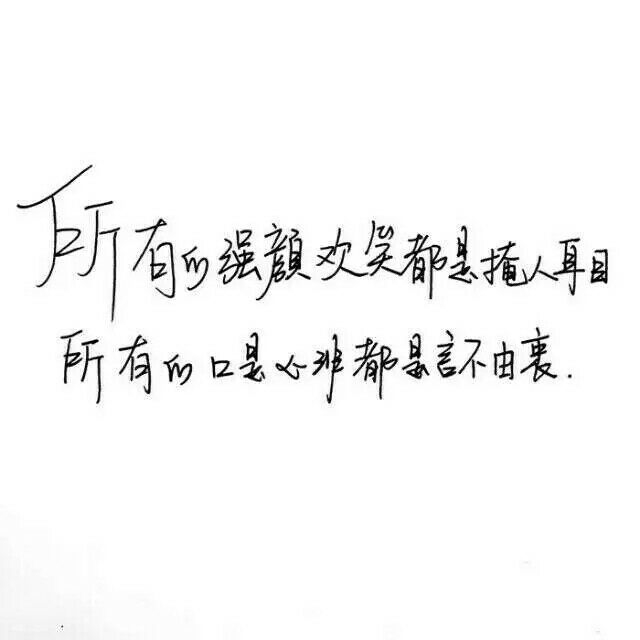 所有的强顔欢笑都是掩人耳目
所有的口是心非都是言不由衷.